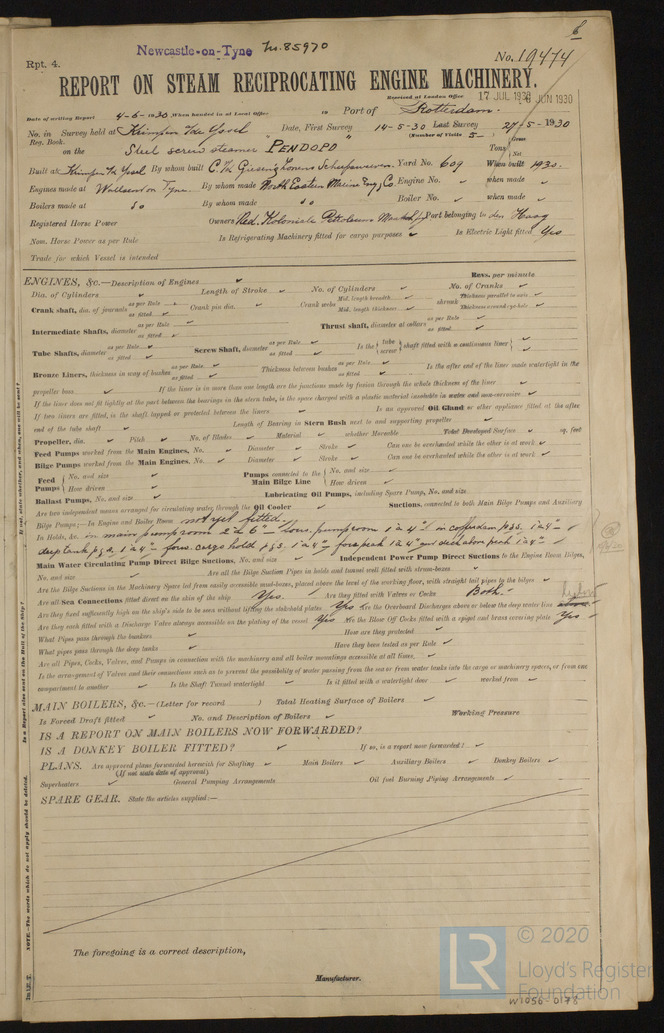 Newcastle-on-Tyne No. 85970
Rpt. 4. No. 19474
REPORT ON STEAM RECIPROCATING ENGINE MACHINERY.
Received at London Office 17 JUL 1930 6 JUN 1930
Date of writing Report 4-6-1930 When handed in at Local Office 19 Port of Rotterdam.
No. in Reg. Book. Survey held at Krimpen a/d Yssel Date, First Survey 14-5-30 Last Survey 27-5-1930
(Number of Visits 5)
on the Steel screw steamer "PENDOPO" Tons Gross Net
Built at Krimpen a/d Yssel By whom built C. v/d Giessen & Zonens Scheepswerven Yard No. 609 When built 1930.
Engines made at Wallsend on Tyne. By whom made North Eastern Marine Eng. Co. Engine No. when made
Boilers made at do By whom made do Boiler No. when made
Registered Horse Power Owners Ned. Koloniale Petroleum Maatsch. Port belonging to den Haag
Nom. Horse Power as per Rule Is Refrigerating Machinery fitted for cargo purposes Is Electric Light fitted Yes
Trade for which Vessel is intended
ENGINES, &c.—Description of Engines Revs. per minute
Dia. of Cylinders Length of Stroke No. of Cylinders No. of Cranks
Crank shaft, dia. of journals as per Rule as fitted Crank pin dia. Crank webs Mid. length breadth Mid. length thickness shrunk Thickness parallel to axis Thickness around eye-hole
Intermediate Shafts, diameter as per Rule as fitted Thrust shaft, diameter at collars as per Rule as fitted
Tube Shafts, diameter as per Rule as fitted Screw Shaft, diameter as per Rule as fitted Is the tube screw shaft fitted with a continuous liner
Bronze Liners, thickness in way of bushes as per Rule as fitted Thickness between bushes as per Rule as fitted Is the after end of the liner made watertight in the
propeller boss If the liner is in more than one length are the junctions made by fusion through the whole thickness of the liner
If the liner does not fit tightly at the part between the bearings in the stern tube, is the space charged with a plastic material insoluble in water and non-corrosive
If two liners are fitted, is the shaft lapped or protected between the liners Is an approved Oil Gland or other appliance fitted at the after
end of the tube shaft Length of Bearing in Stern Bush next to and supporting propeller
Propeller, dia. Pitch No. of Blades Material whether Moveable Total Developed Surface sq. feet
Feed Pumps worked from the Main Engines, No. Diameter Stroke Can one be overhauled while the other is at work
Bilge Pumps worked from the Main Engines, No. Diameter Stroke Can one be overhauled while the other is at work
Feed Pumps No. and size How driven Pumps connected to the Main Bilge Line No. and size How driven
Ballast Pumps, No. and size Lubricating Oil Pumps, including Spare Pump, No. and size
Are two independent means arranged for circulating water through the Oil Cooler Suctions, connected to both Main Bilge Pumps and Auxiliary
Bilge Pumps;—In Engine and Boiler Room not yet fitted.
In Holds, &c. in main pumproom 2 à 6" forw. pumproom 1 à 4" in cofferdam p & s. 1 à 4"
deeptank p & s, 1 à 4" forw. cargo hold p & s 1 à 4" forepeak 1 à 4" and deck above peak 1 à 4"
Main Water Circulating Pump Direct Bilge Suctions, No. and size Independent Power Pump Direct Suctions to the Engine Room Bilges,
No. and size Are all the Bilge Suction Pipes in holds and tunnel well fitted with strum-boxes
Are the Bilge Suctions in the Machinery Space led from easily accessible mud-boxes, placed above the level of the working floor, with straight tail pipes to the bilges
Are all Sea Connections fitted direct on the skin of the ship Yes. Are they fitted with Valves or Cocks Both.
Are they fixed sufficiently high on the ship's side to be seen without lifting the stokehold plates Yes Are the Overboard Discharges above or below the deep water line above
Are they each fitted with a Discharge Valve always accessible on the plating of the vessel Yes Are the Blow Off Cocks fitted with a spigot and brass covering plate Yes
What Pipes pass through the bunkers How are they protected
What pipes pass through the deep tanks Have they been tested as per Rule
Are all Pipes, Cocks, Valves, and Pumps in connection with the machinery and all boiler mountings accessible at all times.
Is the arrangement of Valves and their connections such as to prevent the possibility of water passing from the sea or from water tanks into the cargo or machinery spaces, or from one
compartment to another Is the Shaft Tunnel watertight Is it fitted with a watertight door worked from
MAIN BOILERS, &c.—(Letter for record ) Total Heating Surface of Boilers
Is Forced Draft fitted No. and Description of Boilers Working Pressure
IS A REPORT ON MAIN BOILERS NOW FORWARDED?
IS A DONKEY BOILER FITTED? If so, is a report now forwarded?
PLANS. Are approved plans forwarded herewith for Shafting Main Boilers Auxiliary Boilers Donkey Boilers
(If not state date of approval)
Superheaters General Pumping Arrangements Oil fuel Burning Piping Arrangements
SPARE GEAR. State the articles supplied:—
The foregoing is a correct description,
Manufacturer.
Is a Report also sent on the Hull of the Ship? If not, state whether, and when, one will be sent?
NOTE.—The words which do not apply should be deleted.
LR © 2020
Lloyd's Register
Foundation
W1056-0178